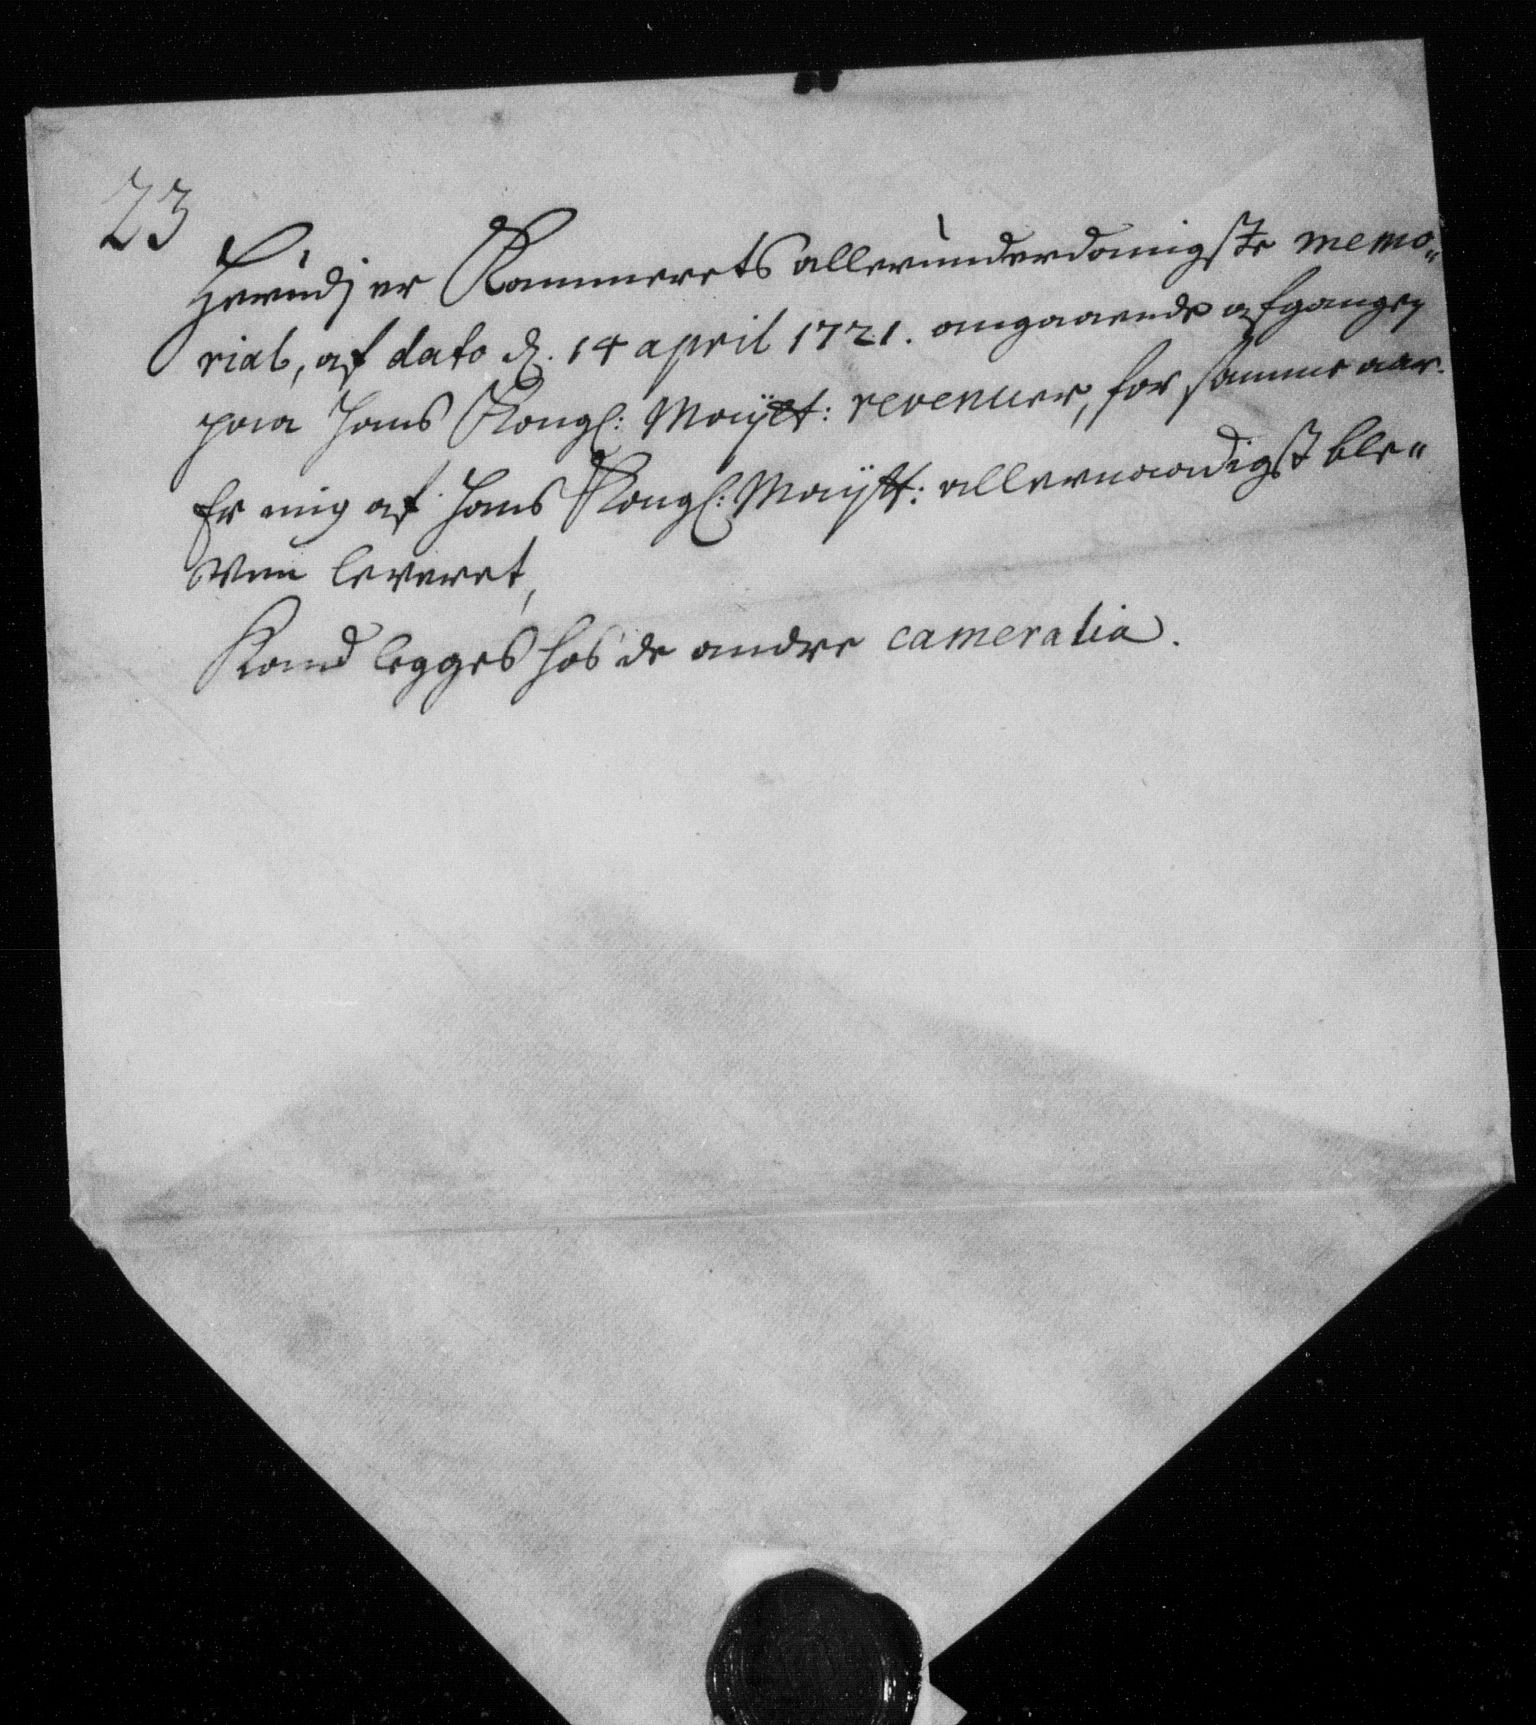 23
Herudj er Kammerets allerunderdanigste memo„
rial, af dato d. 14 april 1721. angaaende afgangen
paa Hans Kongl: Mayst: revenuer, for samme aar.
Er mig af Hans Kongl: Mayst: allernaadigst ble„
ven leveret,
Kand legges hos de andre cameralia.